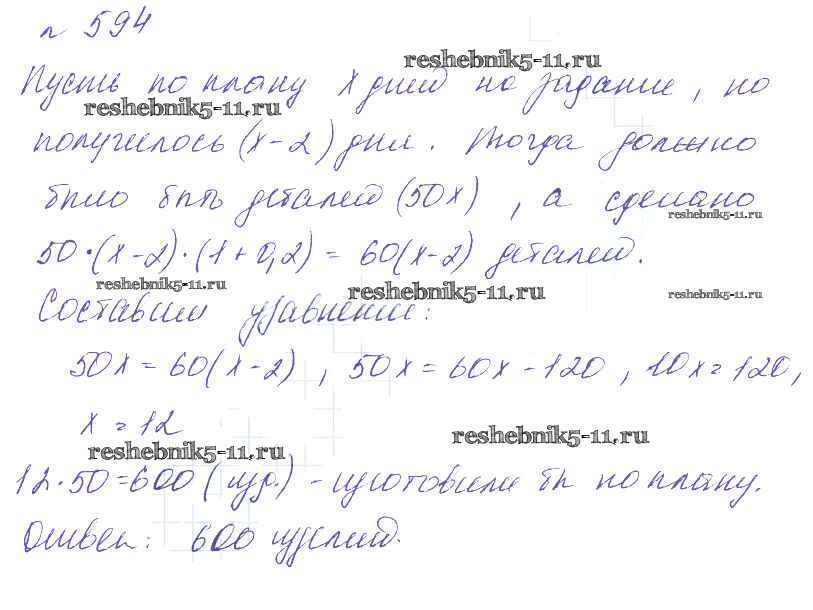 № 594
reshebnik5-11.ru
Пусть по плану x дней на задание, но
reshebnik5-11.ru
получилось (x-2) дня. Тогда должно
было быть деталей (50x), а сделано
reshebnik5-11.ru
50·(x-2)·(1+0,2) = 60(x-2) деталей.
reshebnik5-11.ru
reshebnik5-11.ru
reshebnik5-11.ru
Составим уравнение:
50x = 60(x-2), 50x = 60x - 120, 10x = 120,
x = 12
reshebnik5-11.ru
reshebnik5-11.ru
12·50=600 (изд.) - изготовили бы по плану.
Ответ: 600 изделий.